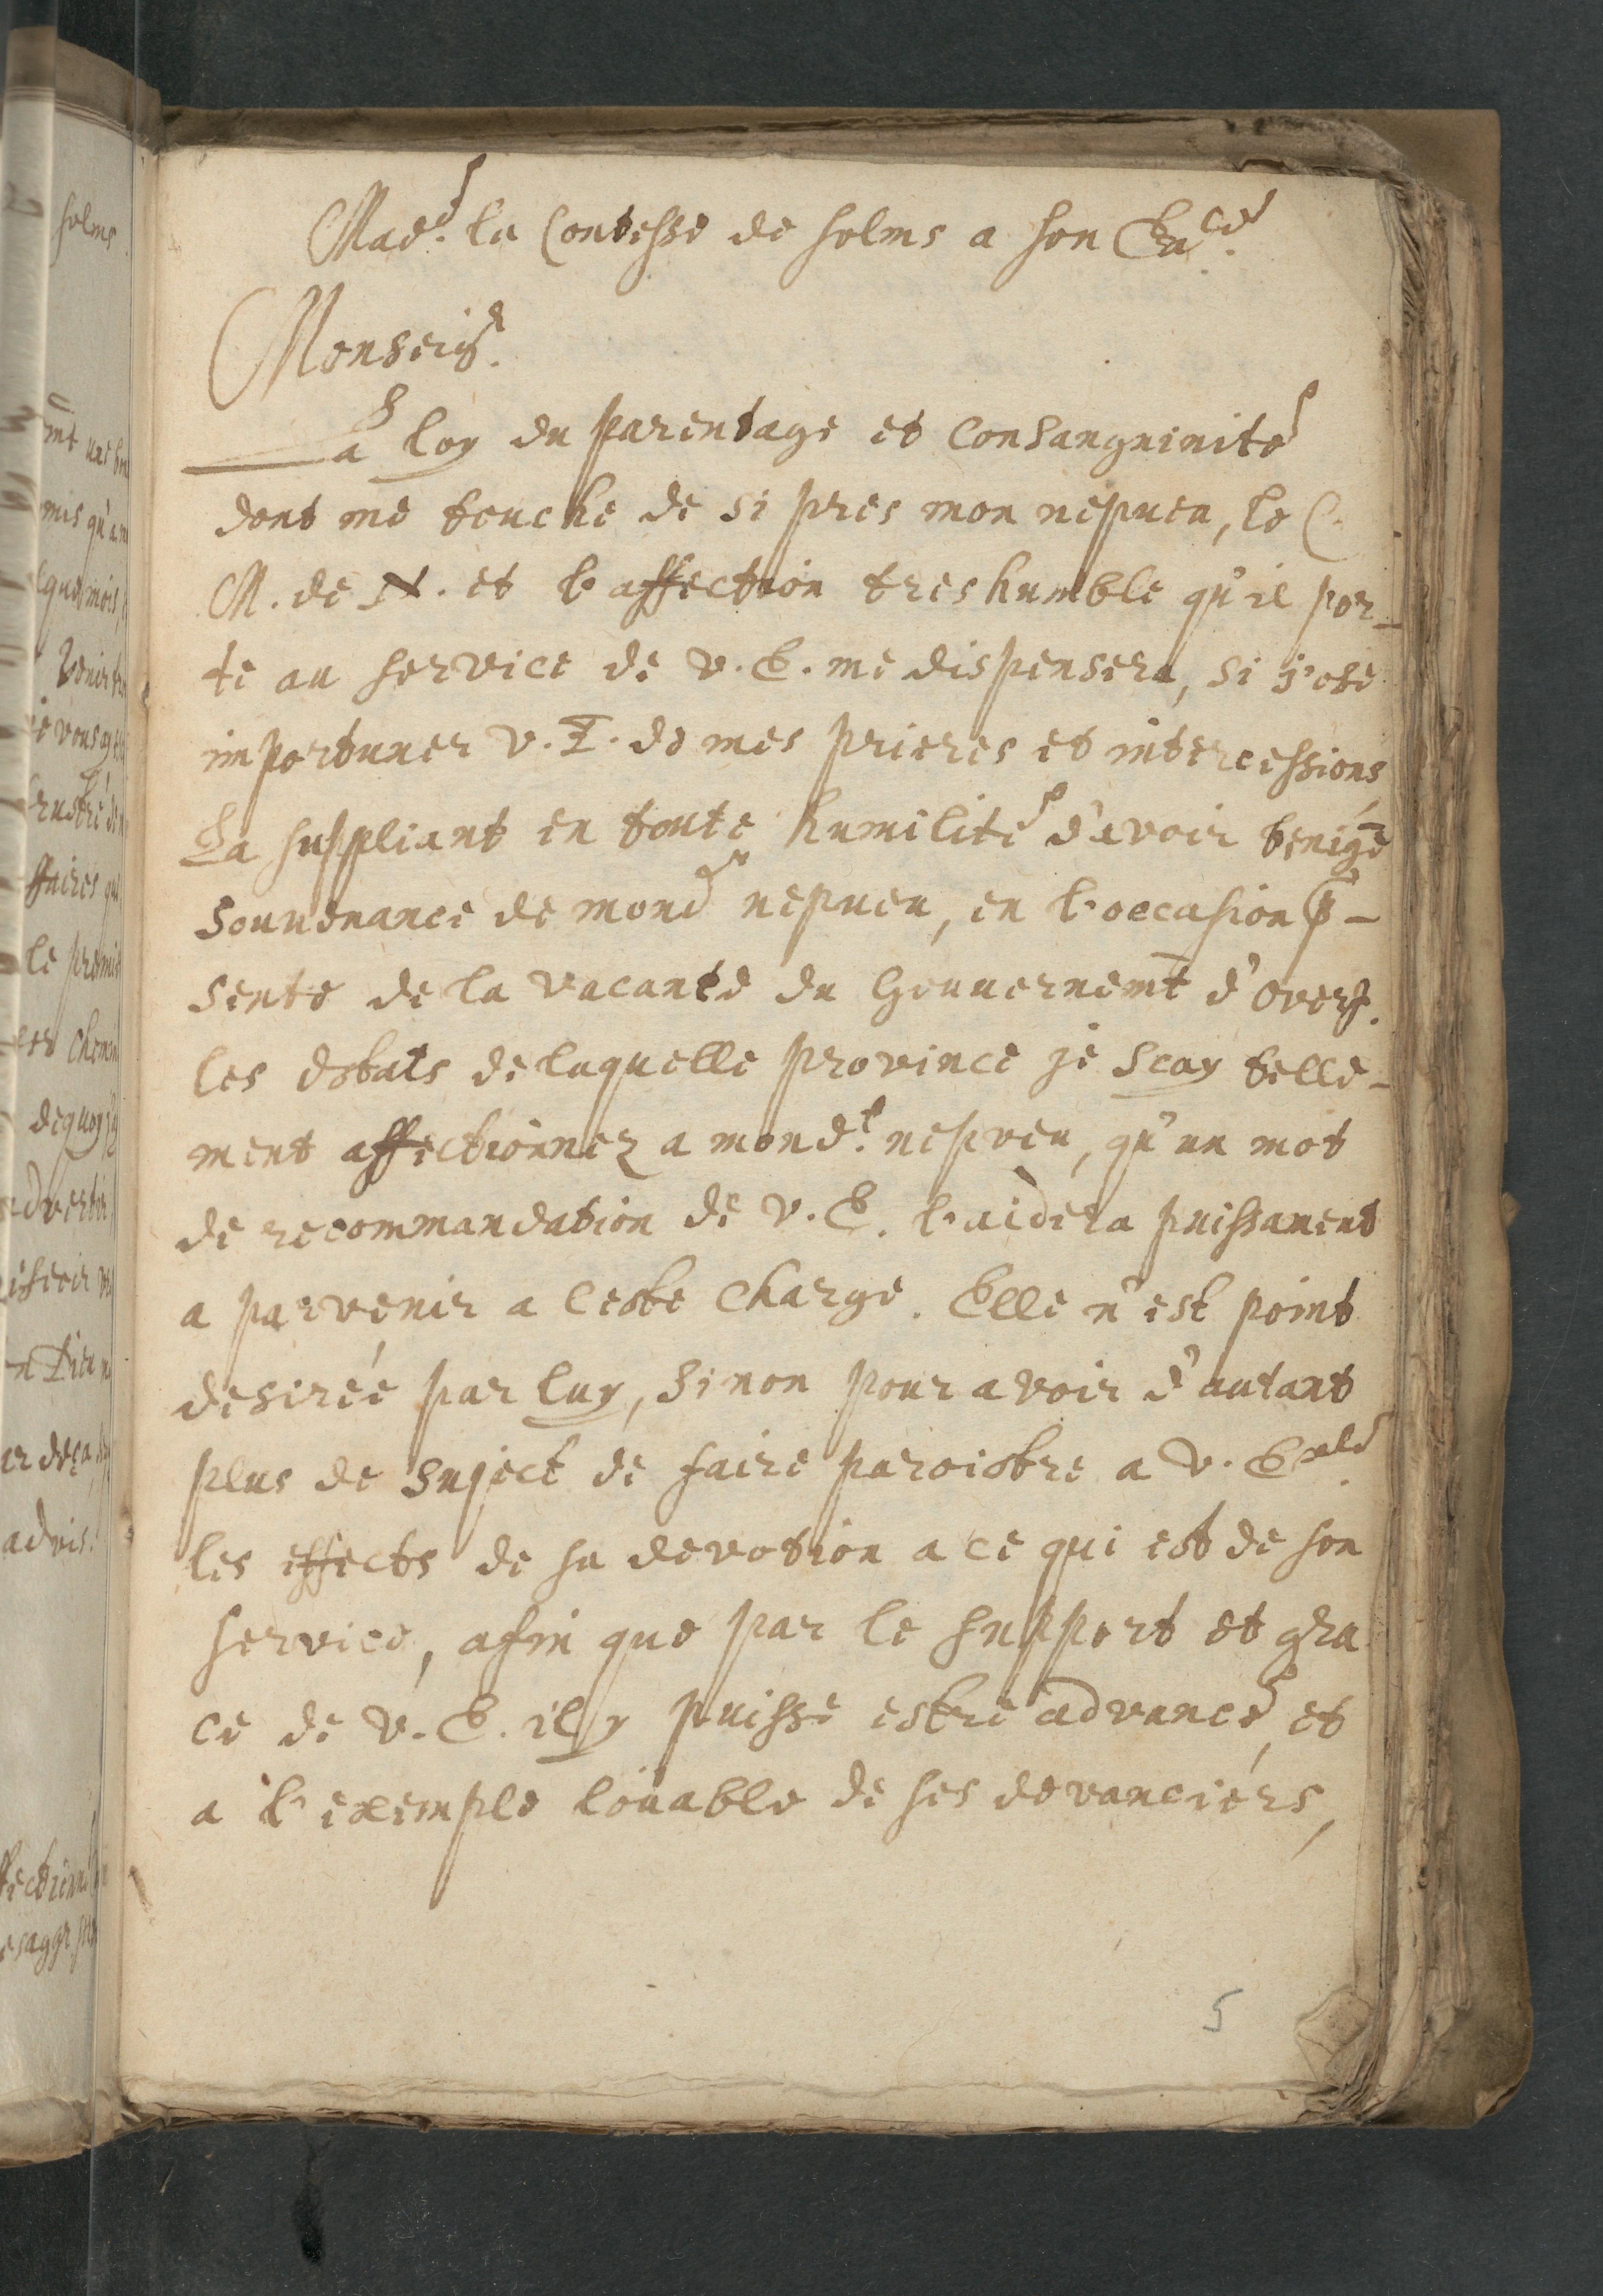 Made. la Contesse de solms a son Exce.
Monseigr.
La loy du parentage et Consanguinité
dont me touche de si pres mon nepueu, le C.
M. de N. et l'affection tres humble qu'il por-
te au service de v. E. me dispensera, si j'ose
importuner v. E. de mes prieres et intercessions
La suppliant en toute humilité d'avoir benigē
souuenance de mondt nepueu, en l'occasion p-
sente de la vacante du Gouuernemt̄ d'Overs.
les estats de laquelle province je scay telle-
ment affectionnez a mondt. nepveu, qu'un mot
de recommandation de v. E. l'aidera puissament
a parvenir a ceste charge. Elle n'est point
desirée par luy, sinon pour avoir d'autant
plus de suject de faire paroistre a v. Exle.
les effects de sa devotion a ce qui est de son
service, afin que par le support et gra
ce de v. E. il y puisse estre advancé, et
a l'exemple loüable de ses devanciers,
5